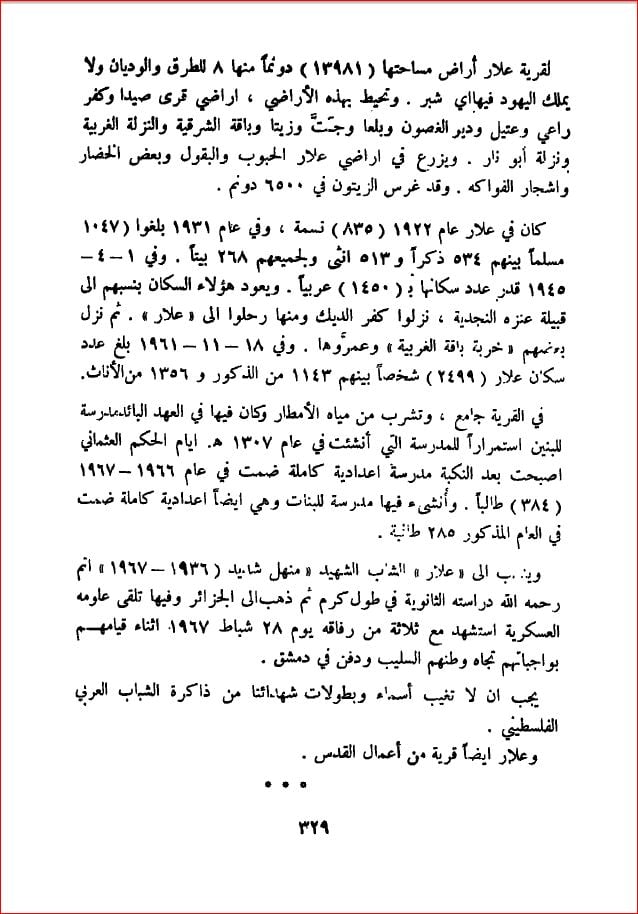 لقرية علار أراض مساحتها ( ١٣٩٨١ ) دونماً منها ٨ للطرق والوديان ولا
يملك اليهود فيها اي شبر . وتحيط بهذه الأراضي ، اراضي قرى صيدا وكفر
راعي وعتيل ودير الغصون وبلعا وجتّ وزيتا وباقة الشرقية والنزلة الغربية
ونزلة أبو نار . ويزرع في اراضي علار الحبوب والبقول وبعض الخضار
واشجار الفواكه . وقد غرس الزيتون في ٦٥٠٠ دونم .
كان في علار عام ١٩٢٢ ( ٨٣٥ ) نسمة ، وفي عام ١٩٣١ بلغوا ( ١٠٤٧
مسلماً بينهم ٥٣٤ ذكراً و ٥١٣ انثى ولجميعهم ٢٦٨ بيتاً . وفي ١ – ٤ –
١٩٤٥ قدر عدد سكانها بـ ( ١٤٥٠ ) عربياً . ويعود هؤلاء السكان بنسبهم الى
قبيلة عنزه النجدية ، نزلوا كفر الديك ومنها رحلوا الى « علار » . ثم نزل
بعضهم « خربة باقة الغربية » وعمروها . وفي ١٨ – ١١ – ١٩٦١ بلغ عدد
سكان علار ( ٢٤٩٩ ) شخصاً بينهم ١١٤٣ من الذكور و ١٣٥٦ من الأناث.
في القرية جامع ، وتشرب من مياه الأمطار وكان فيها في العهد البائد مدرسة
للبنين استمراراً للمدرسة التي أنشئت في عام ١٣٠٧ هـ. ايام الحكم العثماني
اصبحت بعد النكبة مدرسة اعدادية كاملة ضمت في عام ١٩٦٦ – ١٩٦٧
( ٣٨٤ ) طالباً . وأنشىء فيها مدرسة للبنات وهي ايضاً اعدادية كاملة ضمت
في العام المذكور ٢٨٥ طالبة .
وينسب الى « علار » الشاب الشهيد « منهل شديد ( ١٩٣٦ – ١٩٦٧ » اتم
رحمه الله دراسته الثانوية في طول كرم ثم ذهب الى الجزائر وفيها تلقى علومه
العسكرية استشهد مع ثلاثة من رفاقه يوم ٢٨ شباط ١٩٦٧ اثناء قيامهم
بواجباتهم تجاه وطنهم السليب ودفن في دمشق .
يجب ان لا تغيب أسماء وبطولات شهدائنا من ذاكرة الشباب العربي
الفلسطيني .
وعلار ايضاً قرية من أعمال القدس .
* * *
٣٢٩